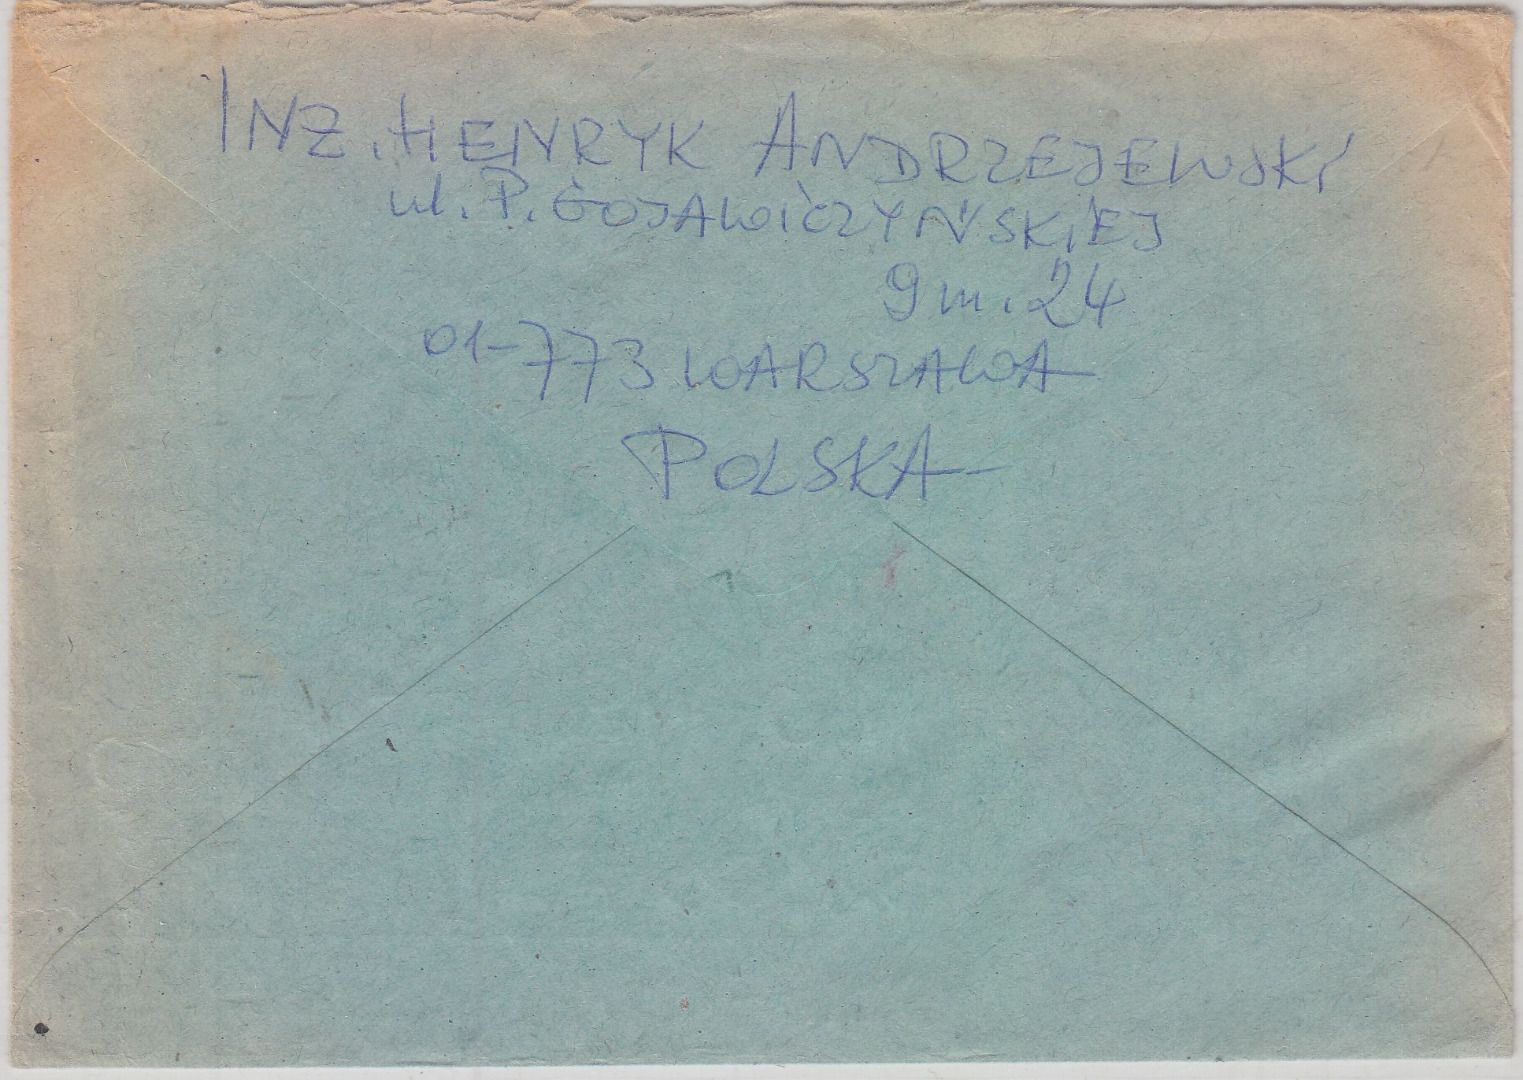 INZ. HENRYK ANDRZEJEWSKI
ul. P. GOJAWICZYŃSKIEJ
9 m. 24
01-773 WARSZAWA
POLSKA